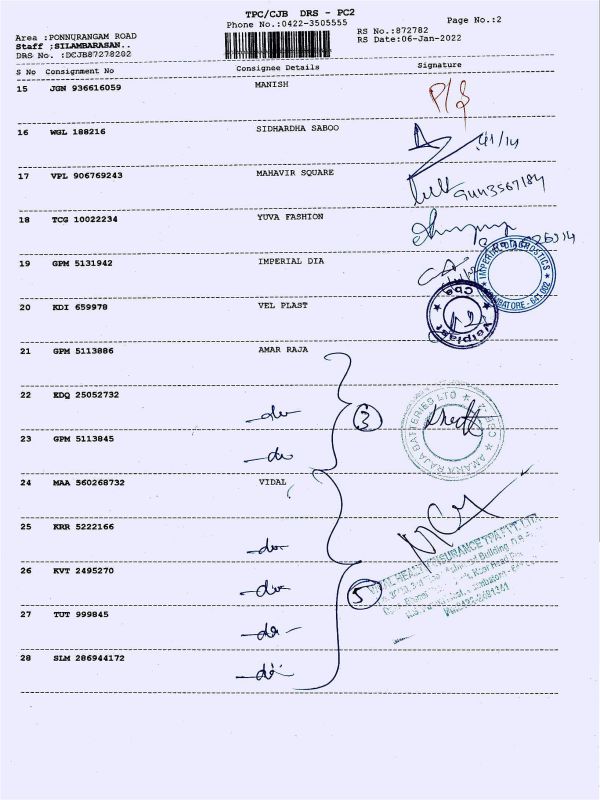 TPC/CJB DRS - PC2
Phone No.:0422-3505555
Page No.:2
Area :PONNURANGAM ROAD
RS No.:872782
Staff :SILAMBARASAN..
RS Date:06-Jan-2022
DRS No. :DCJB87278202
S No Consignment No Consignee Details Signature
15 JGN 936616059 MANISH
16 WGL 188216 SIDHARDHA SABOO
17 VPL 906769243 MAHAVIR SQUARE
9443567184
18 TCG 10022234 YUVA FASHION
19 GPM 5131942 IMPERIAL DIA
IMPERIAL DIAGNOSTICS
20 KDI 659978 VEL PLAST
Velplast Cbe
21 GPM 5113886 AMAR RAJA
22 EDQ 25052732 -do-
3
AMARA RAJA BATTERIES LTD
23 GPM 5113845 -do-
24 MAA 560268732 VIDAL
25 KRR 5222166 -do-
26 KVT 2495270 -do-
5
27 TUT 999845 -do-
28 SLM 286944172 -do-